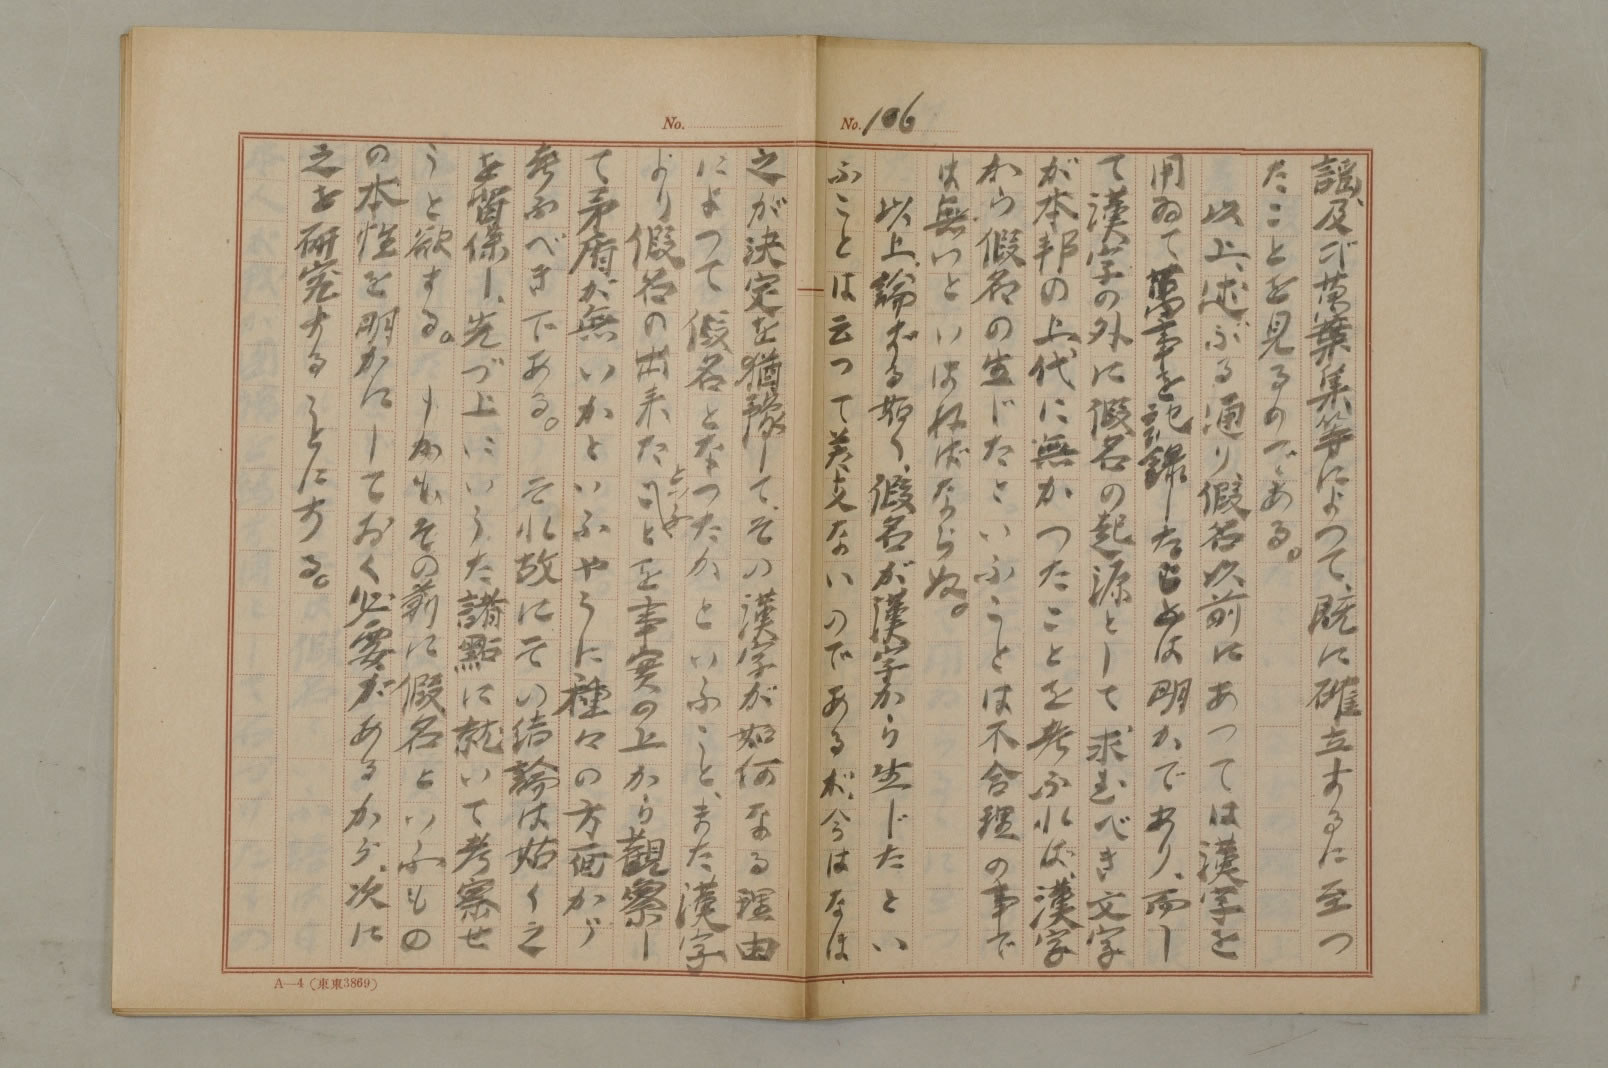 No. 106
謡及び萬葉集等によつて、既に確立するに至つ
たことを見るのである。
以上、述ぶる通り、假名以前にあつては漢字を
用ゐて萬事を記録したことは明かであり、而し
て漢字の外に假名の起源として求むべき文字
が本邦の上代に無かつたことを考ふれば、漢字
から假名の生じたといふことは不合理の事で
は無いといはねばならぬ。
以上、論ずる如く、假名が漢字から生じたとい
ふことは云つて差支ないのであるが、今はなほ
No.
之が決定を猶豫して、その漢字が如何なる理由
によつて假名となつたかといふこと、また漢字
より假名の出来たといふことを事実の上から観察し
て矛盾が無いかといふやうに種々の方面から
考ふべきである。それ故にその結論は姑く之
を留保し、先づ上にいうた諸點に就いて考察せ
うと欲する。しかも、その前に假名といふもの
の本性を明かにしておく必要があるから、次に
之を研究することにする。
A—4 (東東3869)